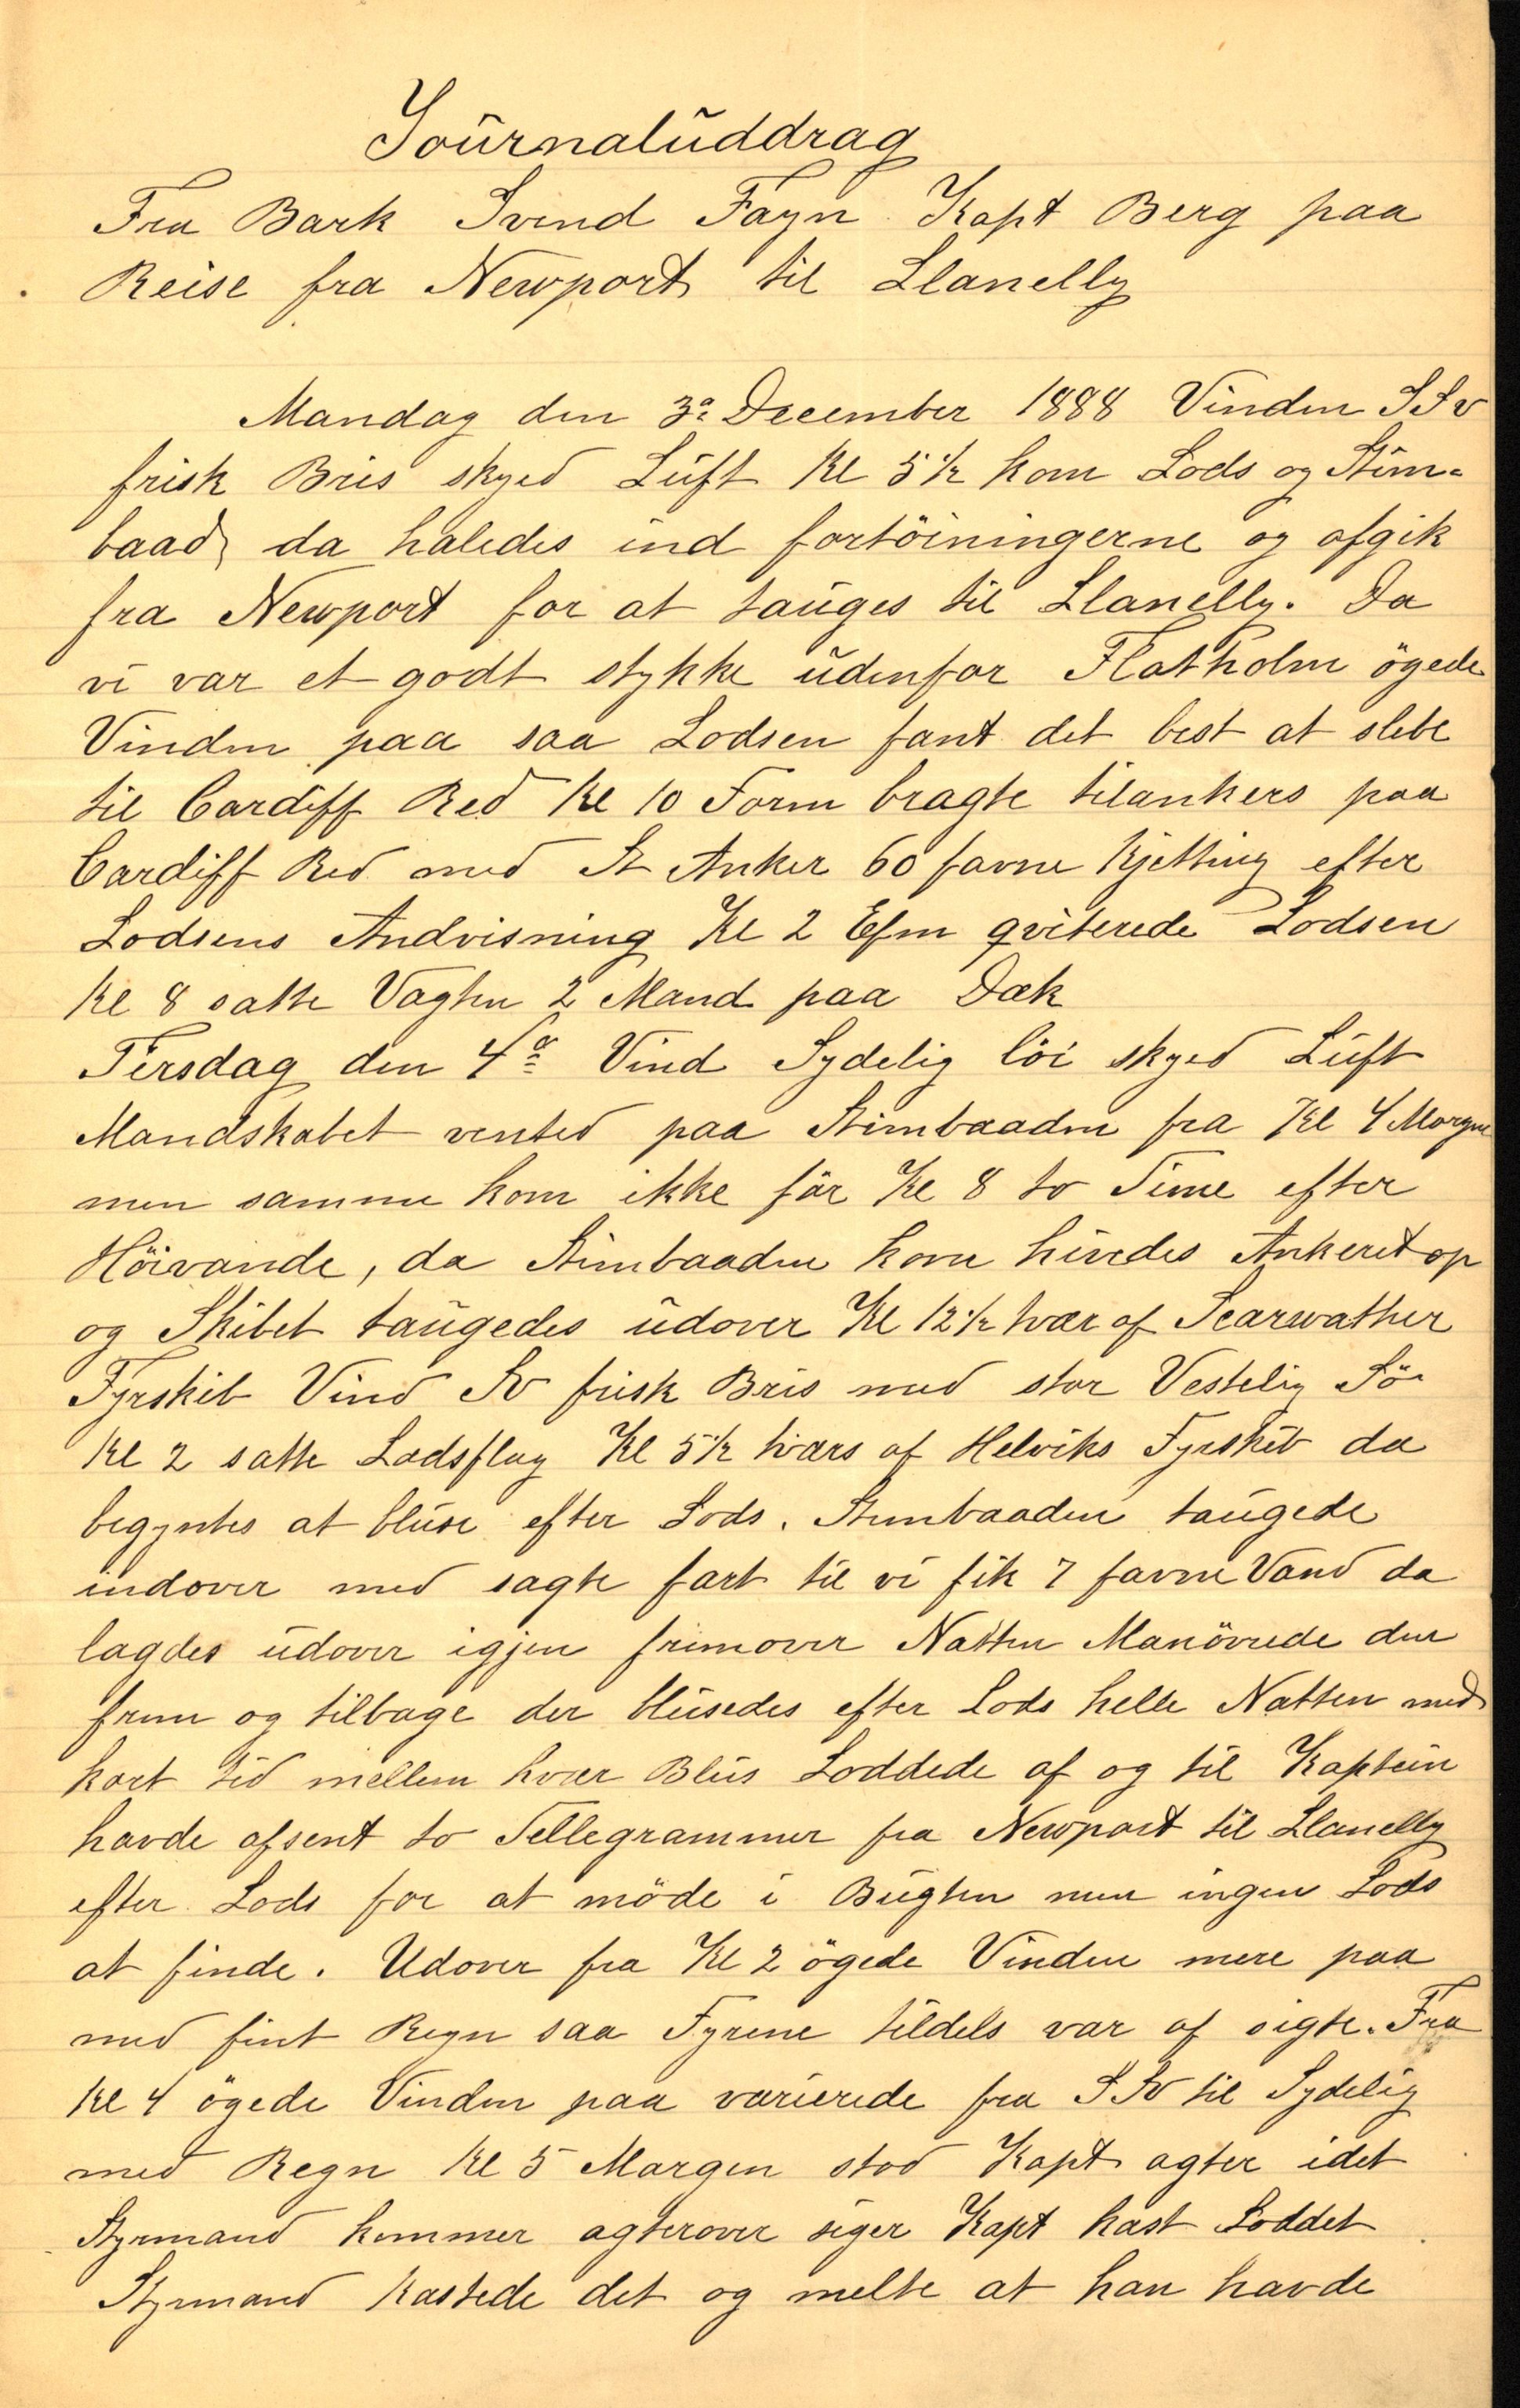 Journaluddrag
Fra Bark Svend Foyn Kapt Berg paa
Reise fra Newport til Llanelly
Mandag den 3die December 1888 Vinden SSv
frisk Bris skyed Luft Kl 5 1/2 kom Lods og Stim-
baad, da haledes ind fortöiningerne og afgik
fra Newport for at tauges til Llanelly. Da
vi var et godt stykke udenfor Flatholm ögede
Vinden paa saa Lodsen fant det best at slebe
til Cardiff Red Kl 10 Form bragte tilankers paa
Cardiff Red med St Anker 60 favne Kjetting efter
Lodsens Andvisning Kl 2 Efm qviterede Lodsen
Kl 8 satte Vagten 2 Mand paa Dæk
Tersdag den 4de Vind Sydelig löi skyed Luft
Mandskabet vented paa Stimbaaden fra Kl 4 Morgen
men samme kom ikke för Kl 8 to Time efter
Höivande, da Stimbaaden kom hivedes Ankeret op
og Skibet taugedes udover Kl 12 1/2 tvær af Scarwather
Fyrskib Vind Sv frisk Bris med stor Vestelig Sö.
Kl 2 satte Lodsflag Kl 5 1/2 tværs af Helviks Fyrskib da
begyntes at bluse efter Lods. Stimbaaden taugede
indover med sagte fart til vi fik 7 favne Vand da
lagdes udover igjen fremover Natten Manövrede den
frem og tilbage der blusedes efter Lods helle Natten med
kort tid mellem hver Blus Loddede af og til Kaptein
havde afsent to Tellegrammer fra Newport til Llanelly
efter Lods for at möde i Bugten men ingen Lods
at finde. Udover fra Kl 2 ögede Vinden mere paa
med fint Regn saa Fyrene tildels var af sigte. Fra
Kl 4 ögede Vinden paa varierede fra SSv til Sydelig
med Regn Kl 5 Morgen stod Kapt agter idet
Styrmand kommer agterover siger Kapt kast Loddet
Styrmand kastede det og melte at han havde